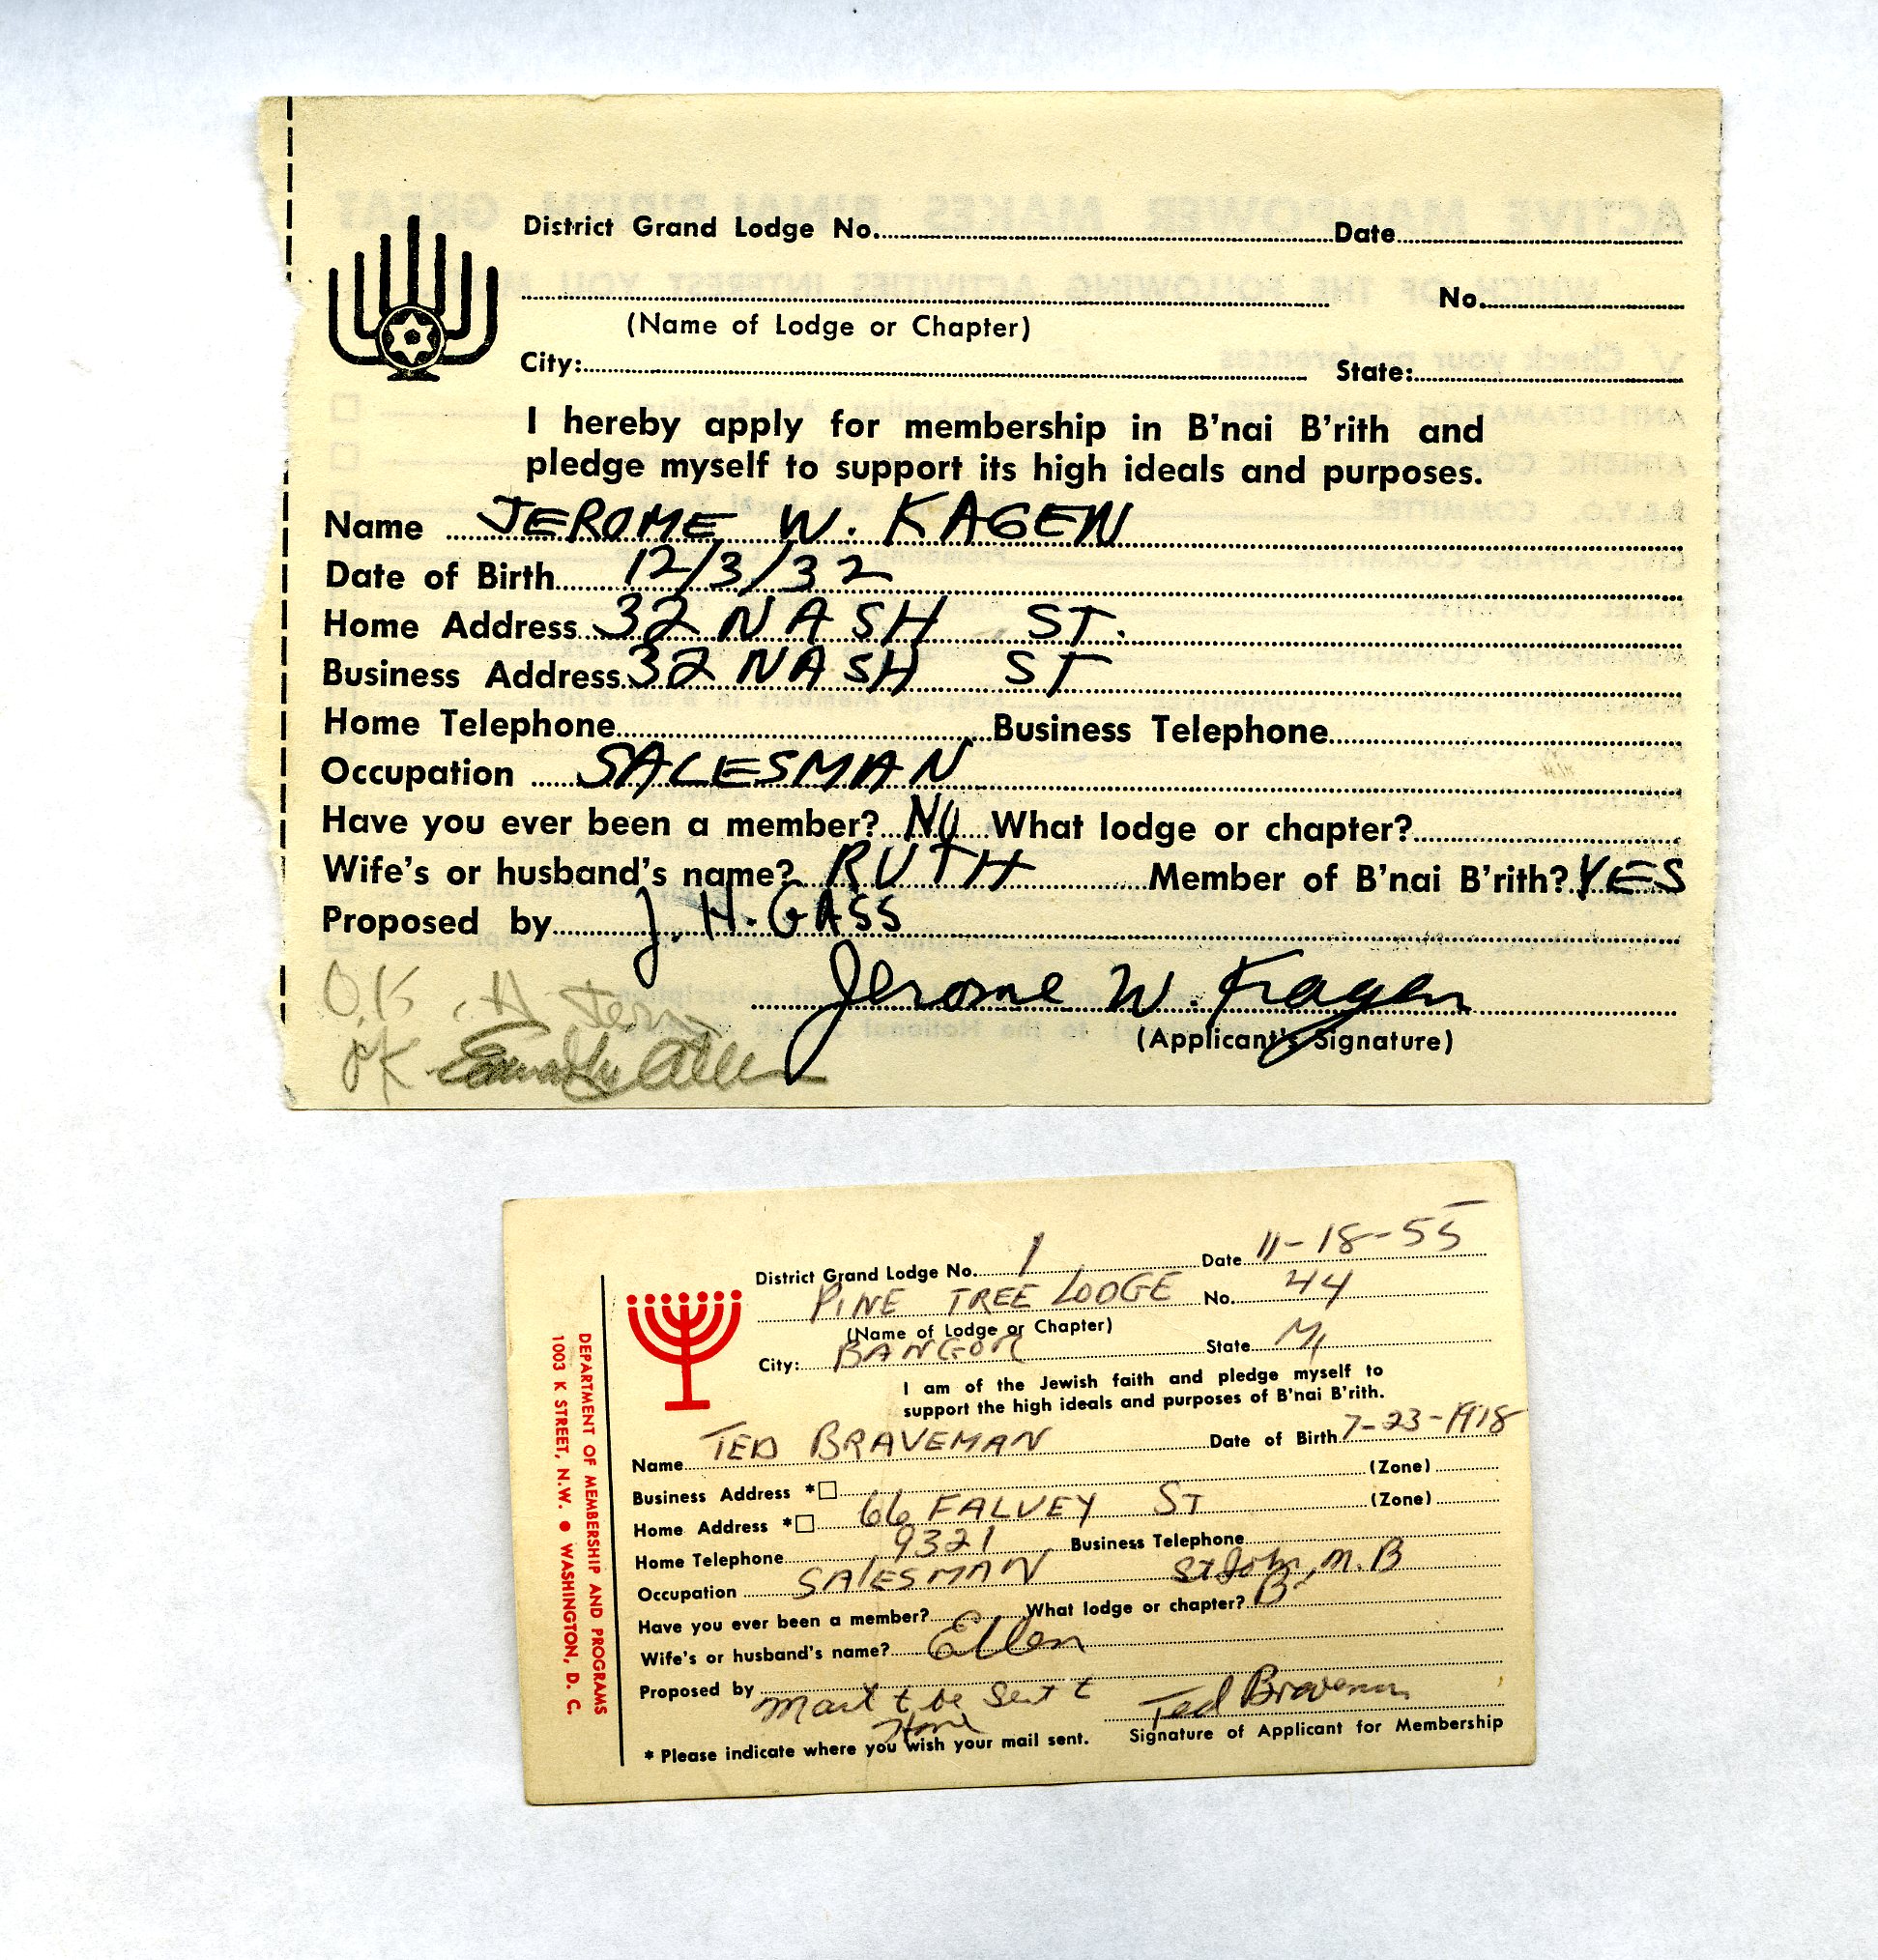 District Grand Lodge No. Date
No.
(Name of Lodge or Chapter)
City: State:
I hereby apply for membership in B'nai B'rith and
pledge myself to support its high ideals and purposes.
Name JEROME W. KAGEN
Date of Birth 12/3/32
Home Address 32 NASH ST.
Business Address 32 NASH ST
Home Telephone Business Telephone
Occupation SALESMAN
Have you ever been a member? NO What lodge or chapter?
Wife's or husband's name? RUTH Member of B'nai B'rith? YES
Proposed by J. H. GASS
O.K.
Jerome W. Kagen
(Applicant's Signature)
OK
District Grand Lodge No. 1 Date 11-18-55
PINE TREE LODGE No. 44
(Name of Lodge or Chapter)
City: BANGOR State
I am of the Jewish faith and pledge myself to
support the high ideals and purposes of B'nai B'rith.
Name TED BRAVEMAN Date of Birth 7-23-1918
Business Address * (Zone)
Home Address * 66 FALVEY ST (Zone)
Home Telephone 9321 Business Telephone
Occupation SALESMAN St John, N.B
Have you ever been a member? What lodge or chapter?
Wife's or husband's name? Ellen
Proposed by
be sent
Ted Braveman
Signature of Applicant for Membership
* Please indicate where you wish your mail sent.
DEPARTMENT OF MEMBERSHIP AND PROGRAMS
1003 K STREET, N.W. ● WASHINGTON, D. C.